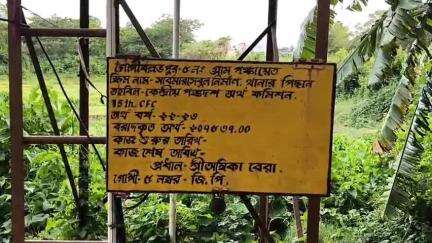 গোপীবল্লভপুর-৫নং গ্রাম পঞ্চায়েত
স্কিম নাম- সাবমারসেবল নির্মাণ, থানার পিছনে
তহবিল-কেন্দ্রীয় পঞ্চদশ অর্থ কমিশন.
15th. CFC
অর্থ বর্ষ-২২-২৩
বরাদ্দকৃত অর্থ-২০৭৫৩৭.00
কাজ শুরুর তারিখ-
কাজ শেষ তারিখ-
প্রধান- শ্রী অম্বিকা বেরা.
গোপী-৫ নম্বর-জি.পি.